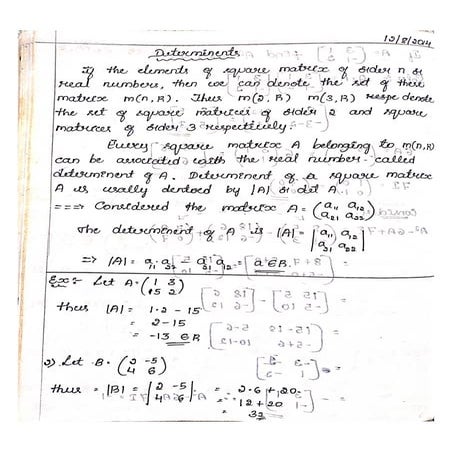 12/8/2014
Determinents
If the elements of square matrix of order n or
real numbers, then we can denote the set of these
matrix m(n,R). Thus m(2,R) m(3,R) respe denote
the set of square matrices of order 2 and square
matrices of order 3 respectively:-
Every square matrix A belonging to m(n,R)
can be associated with the real number called
determinent of A. Determinent of a square matrix
A is usally denoted by |A| or det A.
===> Considered the matrix A = (a11 a12
a21 a22)
The determinent of A is |A| = |a11 a12
a21 a22|
=> |A| = a11 a22 - a21 a12 = a ∈ R.
Ex:- Let A = (1 3
15 2)
thus |A| = 1·2 - 15
= 2-15
= -13 ∈ R
2) Let B = (2 -5
4 6)
thus = |B| = |2 -5
4 6| = 2·6 + 20
= 12 + 20
= 32